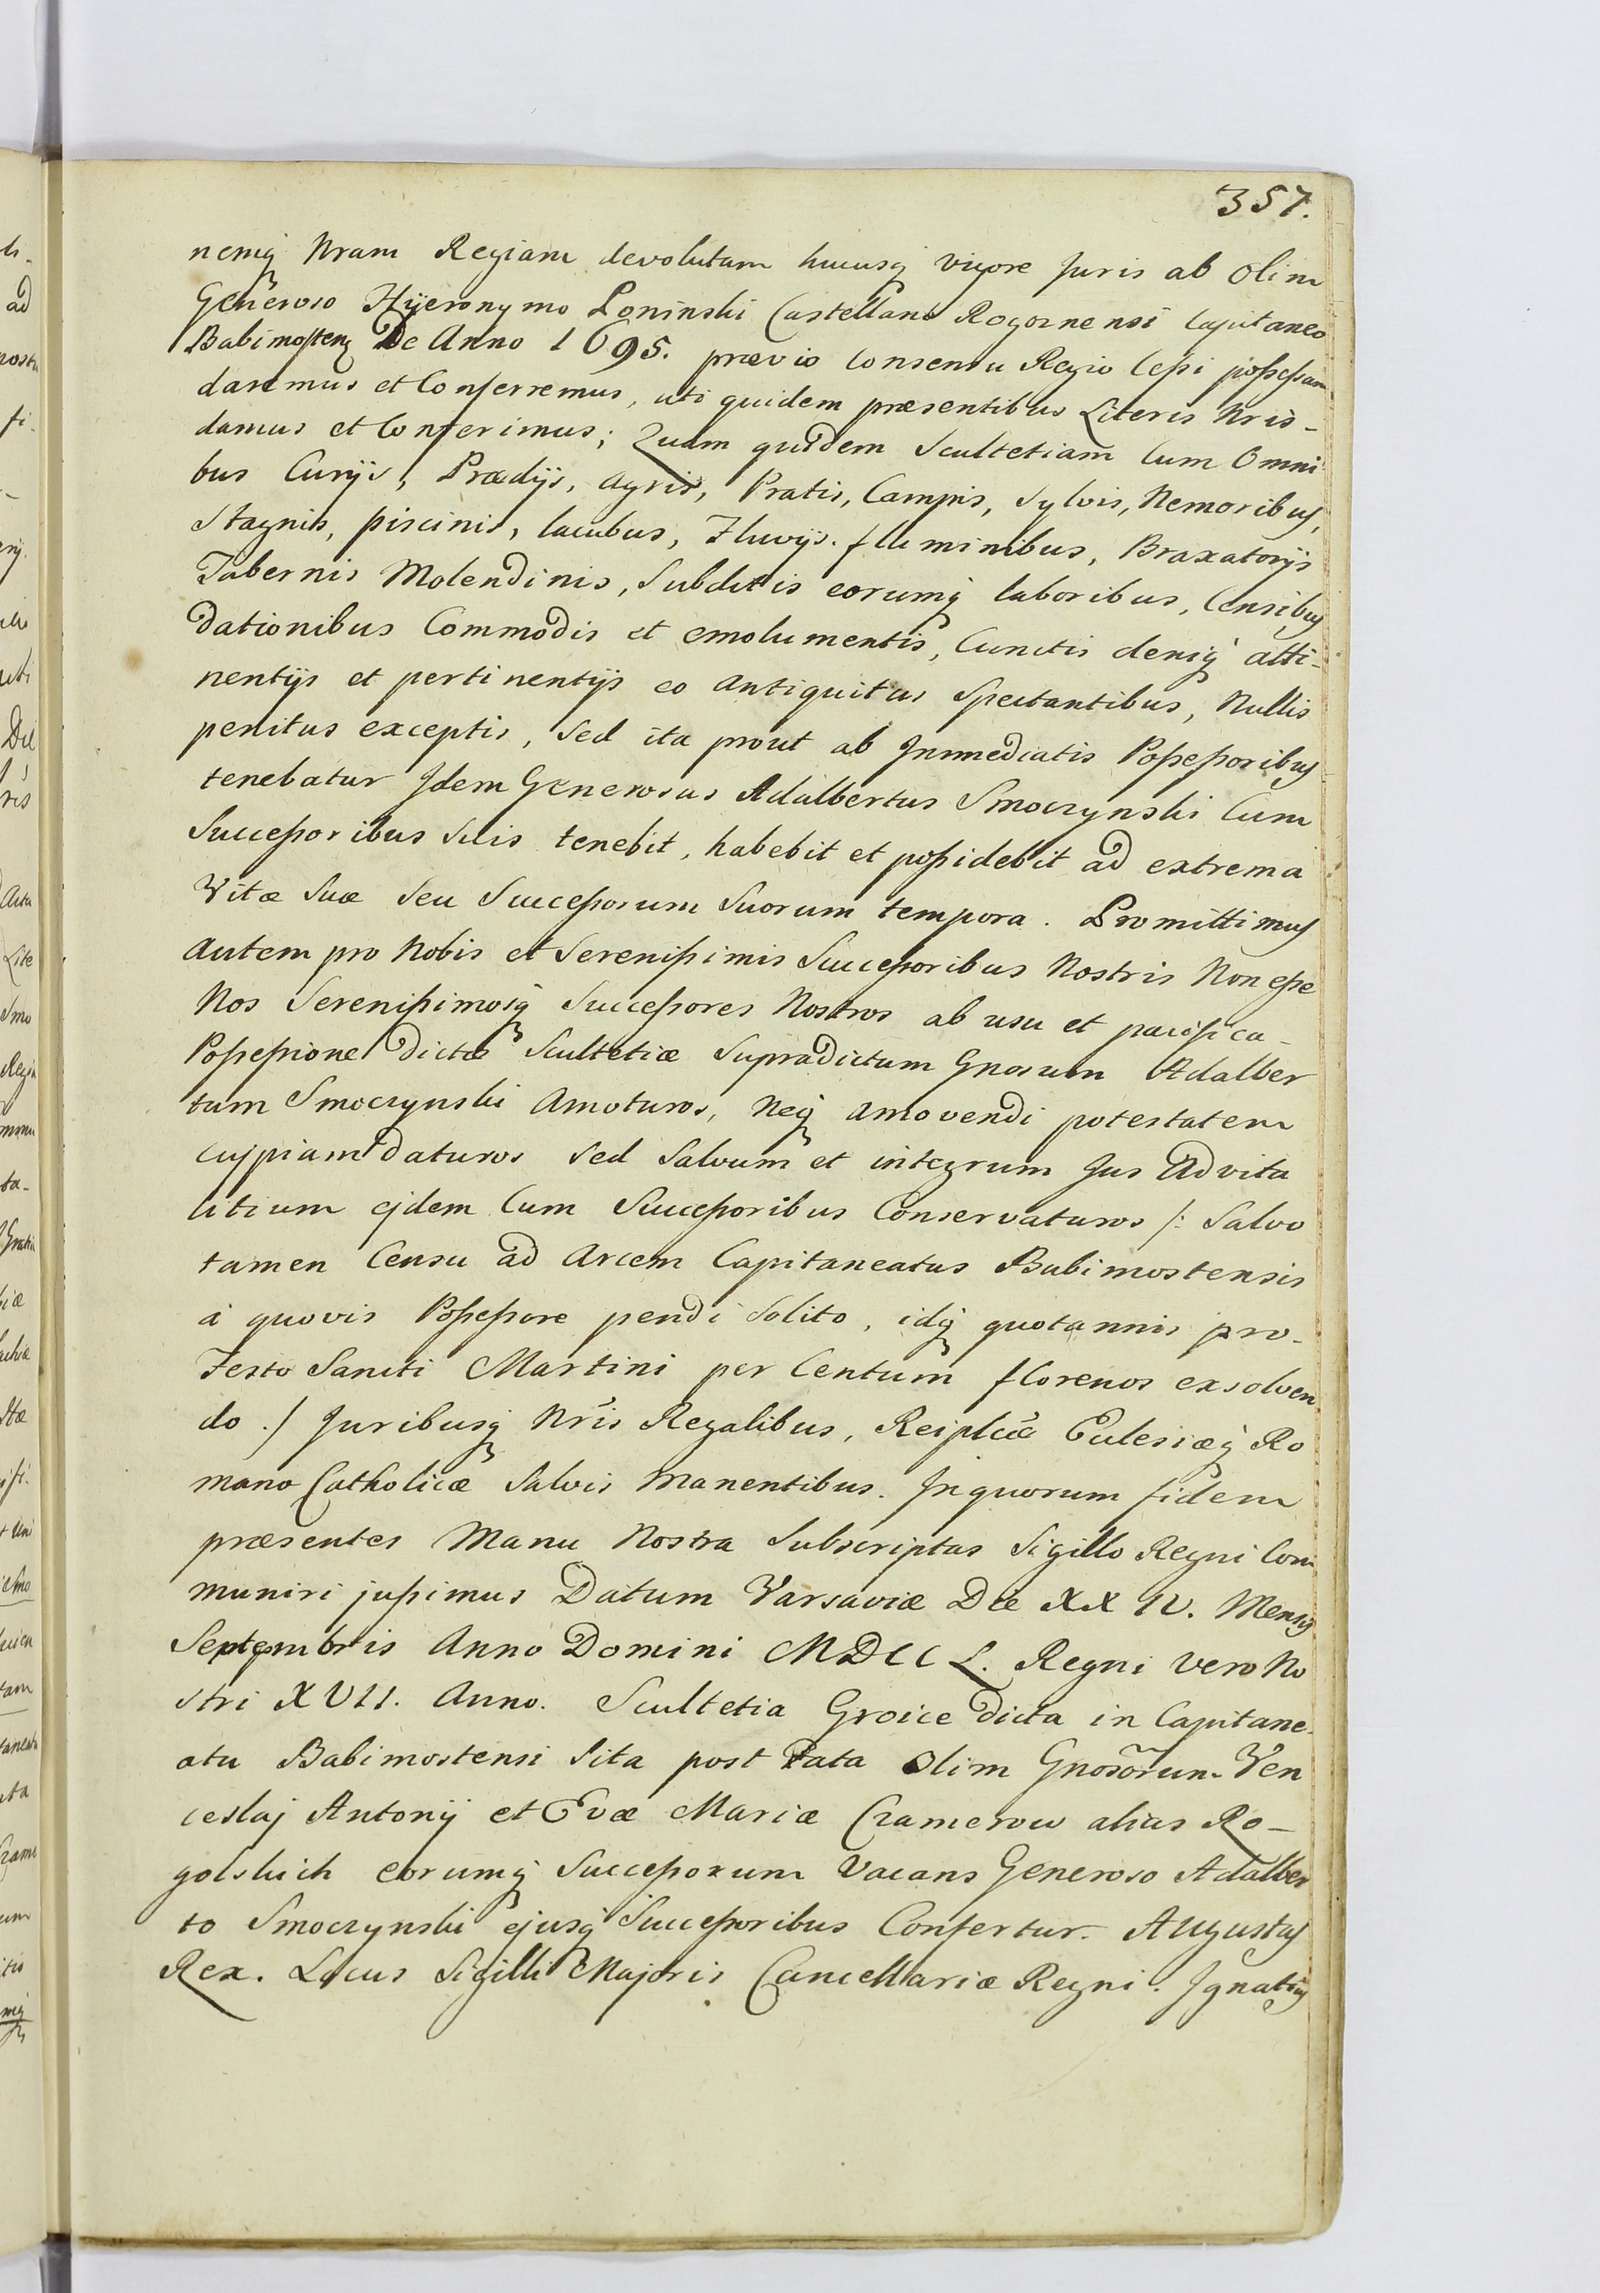 357.
nemq Nram Regiam devolutam hucusq vigore Juris ab olim
Generoso Hyeronymo Poninski Castellano Rogoznensi Capitaneo
Babimosten De Anno 1695. prævio Consensu Regio Cessi possessam
daremus et Conferremus, uti quidem præsentibus Literis Nris -
damus et Conferimus; Quam quidem Scultetiam Cum Omni
bus Curijs, Prædijs, agris, Pratis, Campis, Sylvis, Nemoribus,
Stagnis, piscinis, lacubus, Fluvijs. fluminibus, Braxatorijs
Tabernis Molendinis, Subditis eorumq laboribus, Censibus
Dationibus Commodis et emolumentis, Cunctis deniq atti-
nentijs et pertinentijs eo antiquitus Spectantibus, Nullis
penitus exceptis, Sed ita prout ab Immediatis Possessoribus
tenebatur Idem Generosus Adalbertus Smoczynski Cum
Successoribus Suis tenebit, habebit et possidebit ad extrema
Vitæ Suæ Seu Successorum Suorum tempora. Promittimus
Autem pro Nobis et Serenissimis Successoribus Nostris Non esse
Nos Serenissimosq Successores Nostros ab usu et pacifica -
Possessione dictæ Scultetiæ Supradictum Gnosum Adalber
tum Smoczynski Amoturos, Neq amovendi potestatem
cujpiam daturos Sed Salvum et integrum Jus Advita
litium ejdem Cum Successoribus Conservaturos /: Salvo
tamen Censu ad Arcem Capitaneatus Babimostensis
à quovis Possessore pendi Solito, idq quotannis pro-
Festo Sancti Martini per Centum florenos exsolven
do ./ Juribusq Nris Regalibus, Reiplcæ Eclesiæq Ro
mano Catholicæ Salvis Manentibus. In quorum fidem
præsentes Manu Nostra Subscriptas Sigillo Regni Com
muniri jussimus Datum Varsaviæ Die XX IV. Mensis
Septembris Anno Domini MDCC L. Regni vero No
stri XVII. Anno. Scultetia Groice dicta in Capitane-
atu Babimostensi Sita post Fata Olim Gnosorum Ven
ceslaj Antonij et Evæ Mariæ Cramerow alias Ro-
golskich eorumq Successorum Vacans Generoso Adalber
to Smoczynski ejusq Successoribus Confertur. Augustus
Rex. Locus Sigilli Majoris Cancellariæ Regni. Ignatius